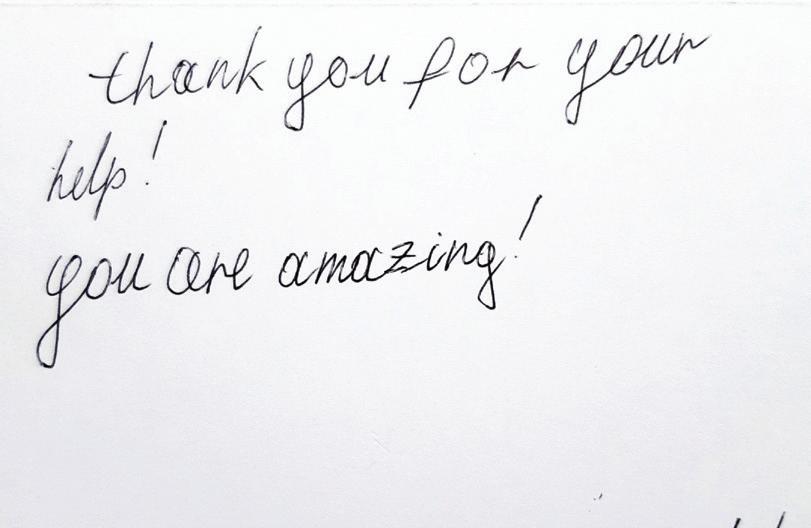 thank you for your
help!
you are amazing!